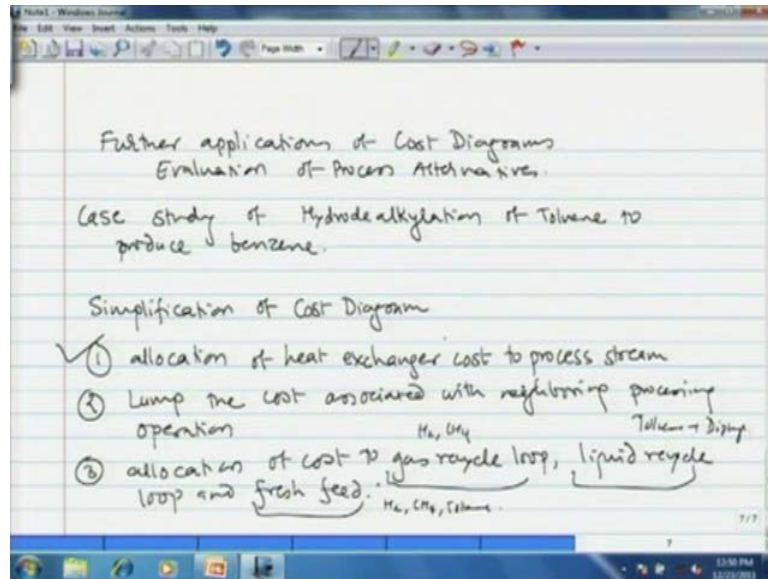 Note1 - Windows Journal
File Edit View Insert Actions Tools Help
Page Width
Further applications of Cost Diagrams
Evaluation of Process Alternatives.
Case study of Hydrodealkylation of Toluene to
produce benzene.
Simplification of Cost Diagram
① allocation of heat exchanger cost to process stream
② Lump the cost associated with neighboring processing
operation
H₂, CH₄
Toluene +
③ allocation of cost to gas recycle loop, liquid recycle
loop and fresh feed.
H₂, CH₄, Toluene.
7/7
7
12:50 PM
12/23/2011